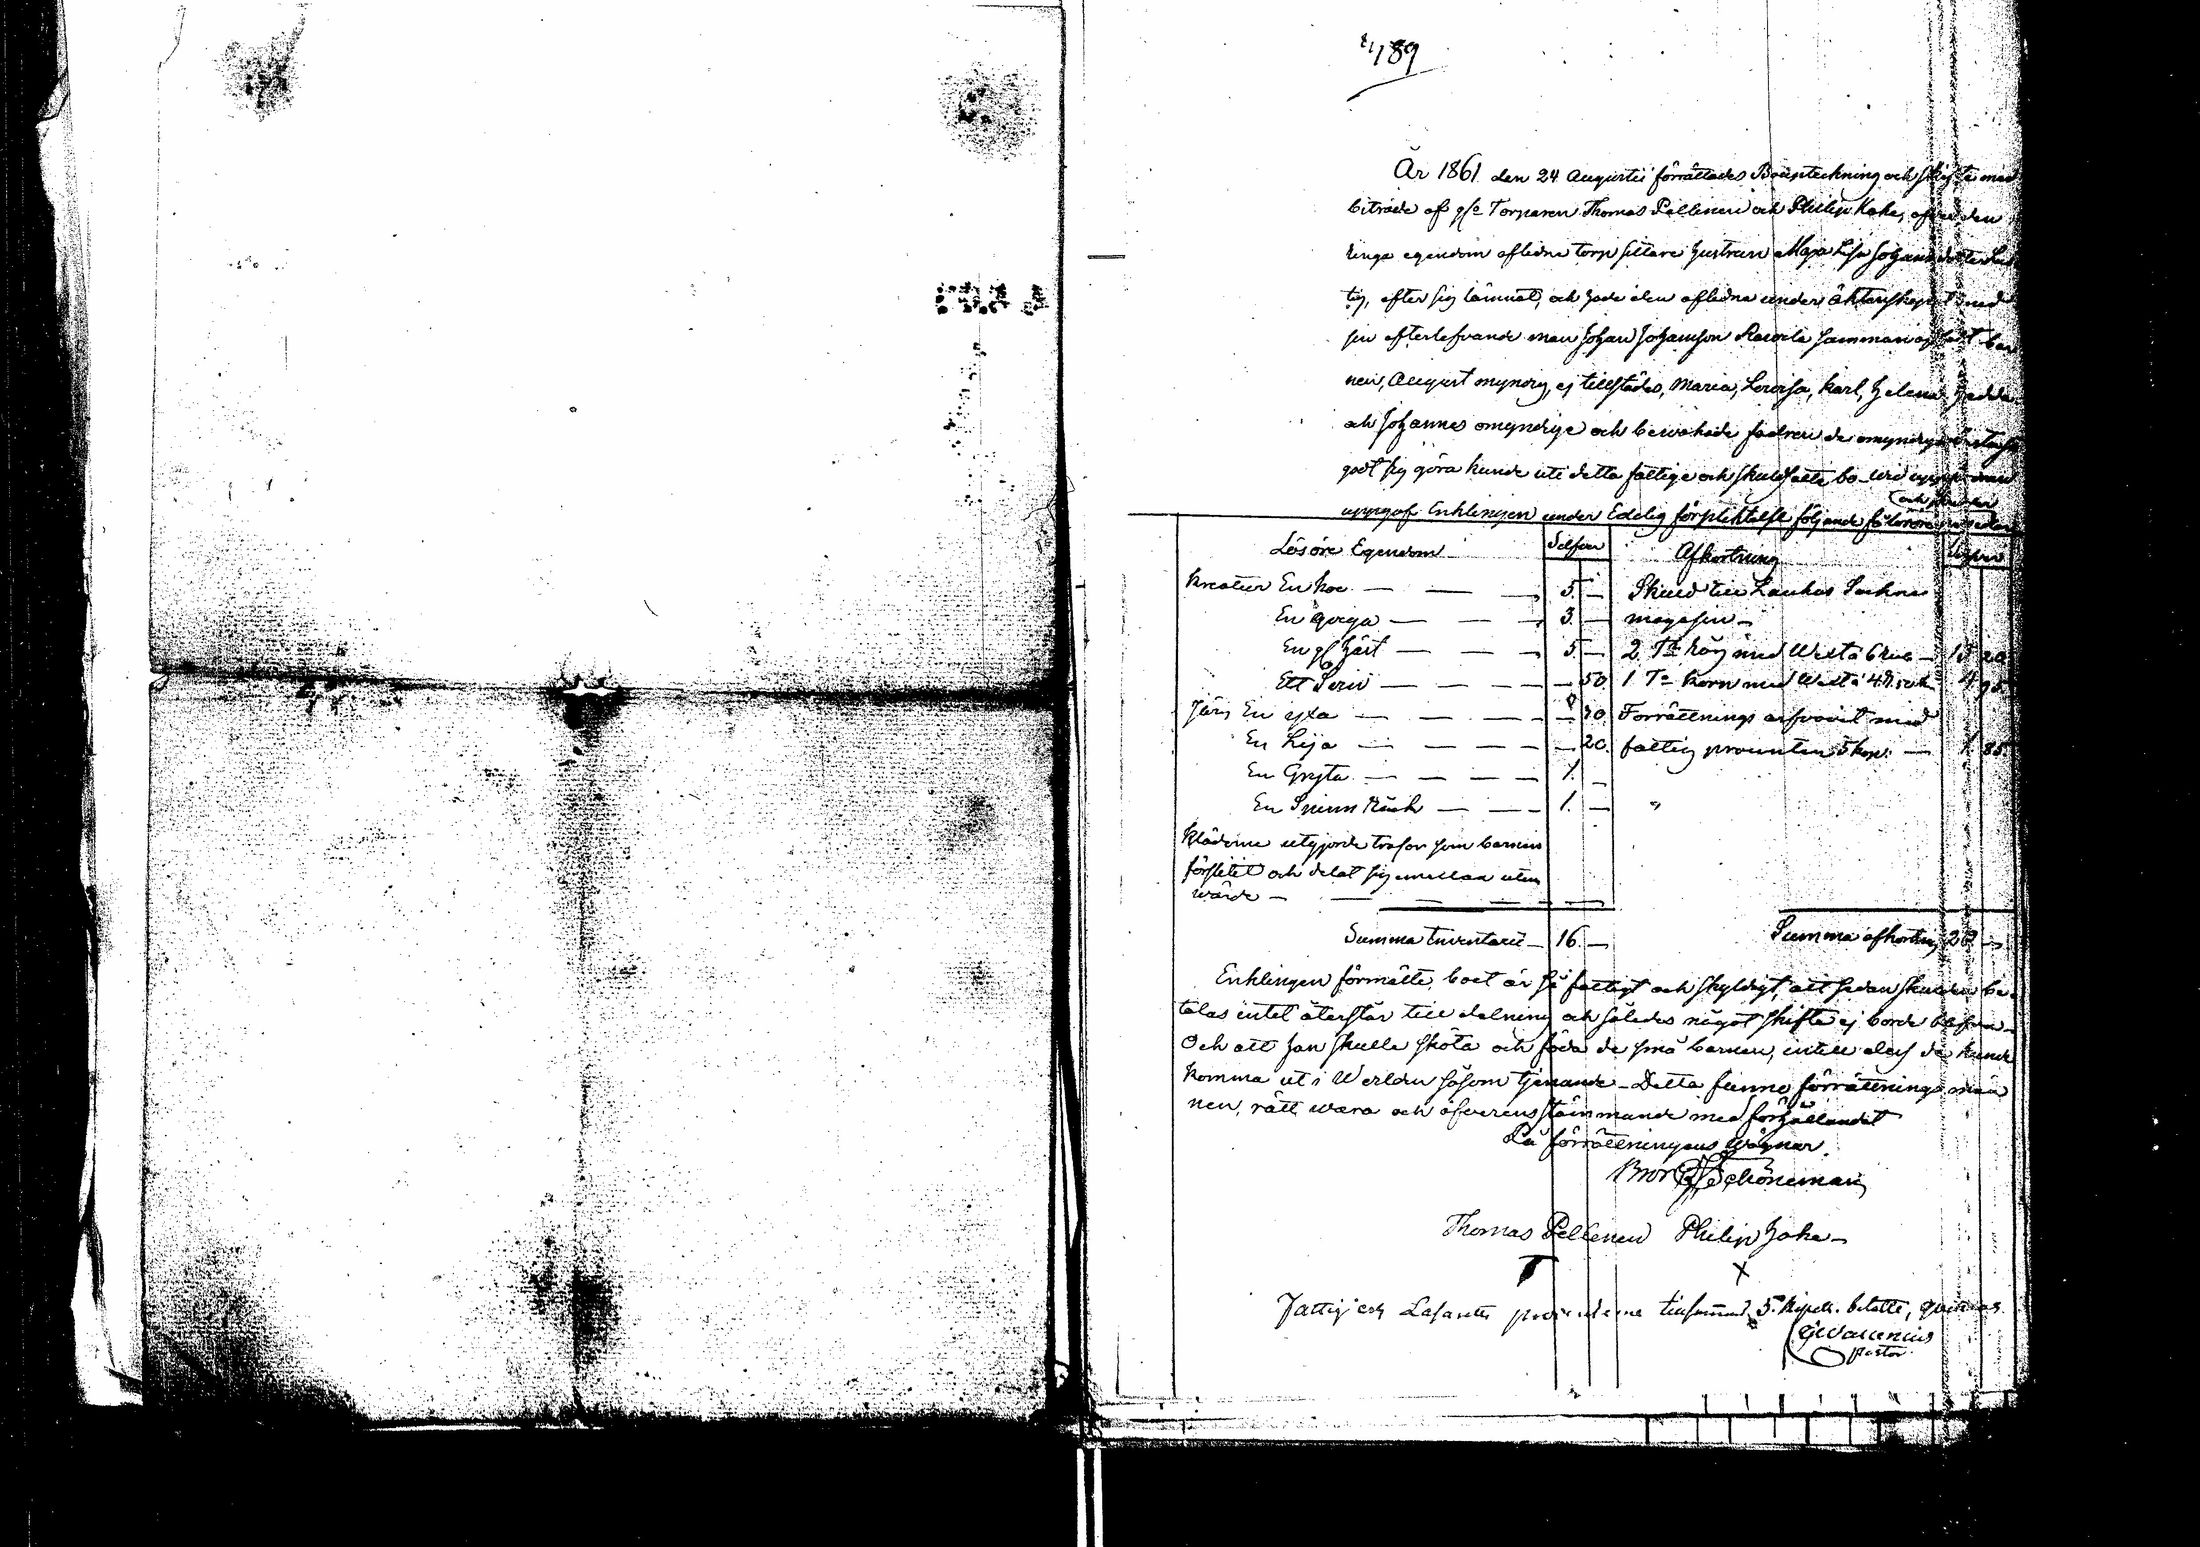 189
År 1861 den 24 Augustii förrättades Bouptekning och skifte med
biträde af gl. Torparen Thomas Pellinen och Philip Hake, öfver den
ringa egendom aflidna torp sittare hustrun Maja Lisa Johans dotter
tig, efter sig lämnat, och hade den aflidna under äktenskapet med
sin efterlefvande man Johan Johansson sammanaflat bar
nen, August myndig, ej tillstädes, Maria, Lovisa, Karl, Helena, Hedda
och Johannes omyndige och bevakade fadren de omyndiges rätt så
godt sig göra kunde uti detta fattige och skuldsatte bo. wid
och skulder
uppgaf Enklingen under Edelig förpliktelse följande
Lösöre Egendom Silfver Afkortning Silfver
Kreatur En ko — — — 5. — Skuld till Laukas Soknes
En qviga — — — 3. — magasin —
En gl häst — — — 5. — 2 Tr Råg med Wext à 6 Rub — 15 20
Ett Svin — — — — 50 1 Tr Korn med Wext à 4 R. 50 k 4 95
Järn En yxa — — — — 30. Förrättnings arfvoit med
En Lija — — — — 20. fattig prosenten 5 kop. — 1 85
En Gryta — — — 1. —
En Spinn Råck — — — 1. — "
Kläderne utgjorde trasor som barnen
förslitit och delat sig emellan utan
wärde — — — —
Summa Inventarii — 16. — Summa afkortning 22 —
Enklingen förmälte, boet är så fattigt och skyldigt, att sedan skulden be-
talas intet återstår till delning och således något skifte ej borde
Och att han skulle sköta och föda de små barnen, intill dess de kunde
komma ut i Werlden såsom tjenande — Detta funno förrättnings män
nen, rätt wara och öfverensstämmande med förhållandet
På förrättningens wägnar.
Bror Schöneman
Thomas Pellinen Philip Hake —
T X
Fattig och Lasaretts prosenterne tillsammans 5 kopek. betalte, qvitteras
Wallenius
pastor.